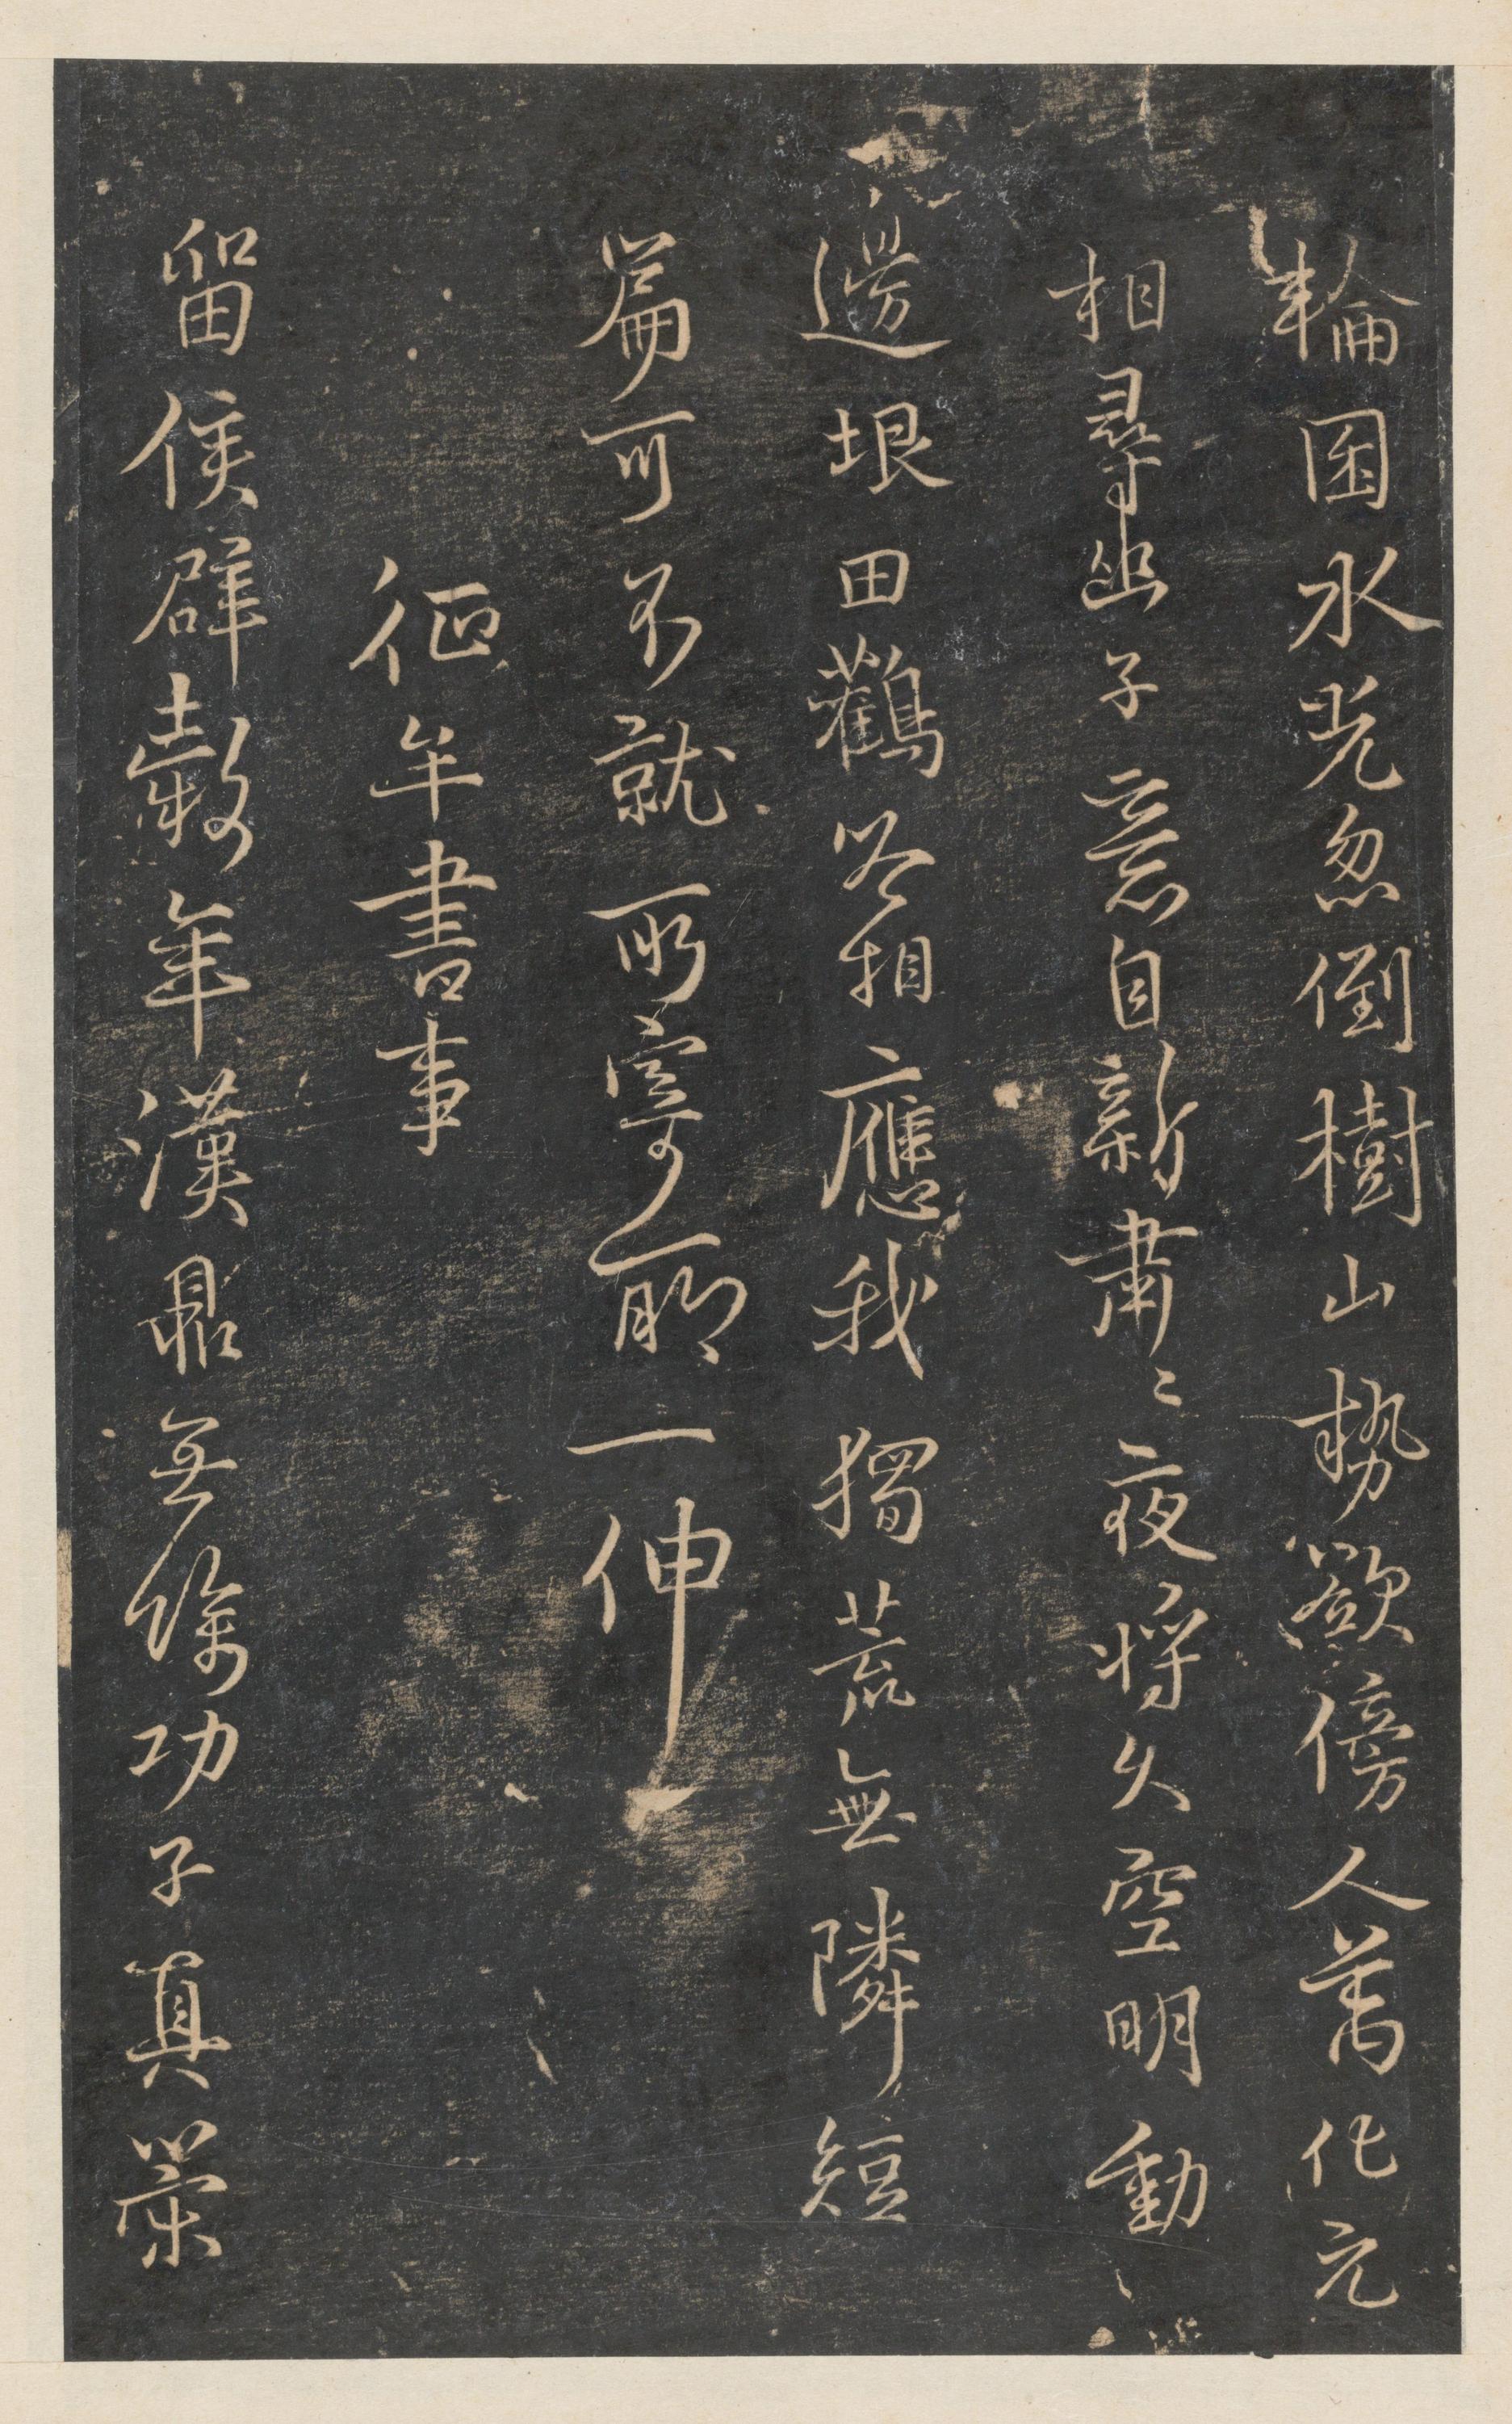 輪囷水光忽倒樹山勢欲傍人萬化元
相尋幽子意自新肅〻夜將久空明動
邊垠田鸛咎相應我獨荒無隣短
篇可不就所寄聊一伸
伍年書事
留侯辟穀年漢鼎無餘功子真策